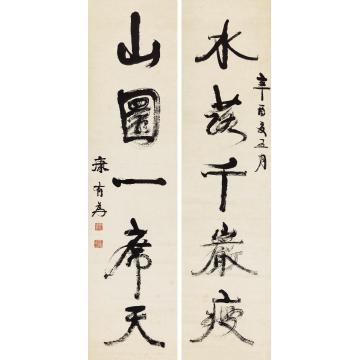 水落千巖瘦
辛酉夏五月
山圍一席天
康有為